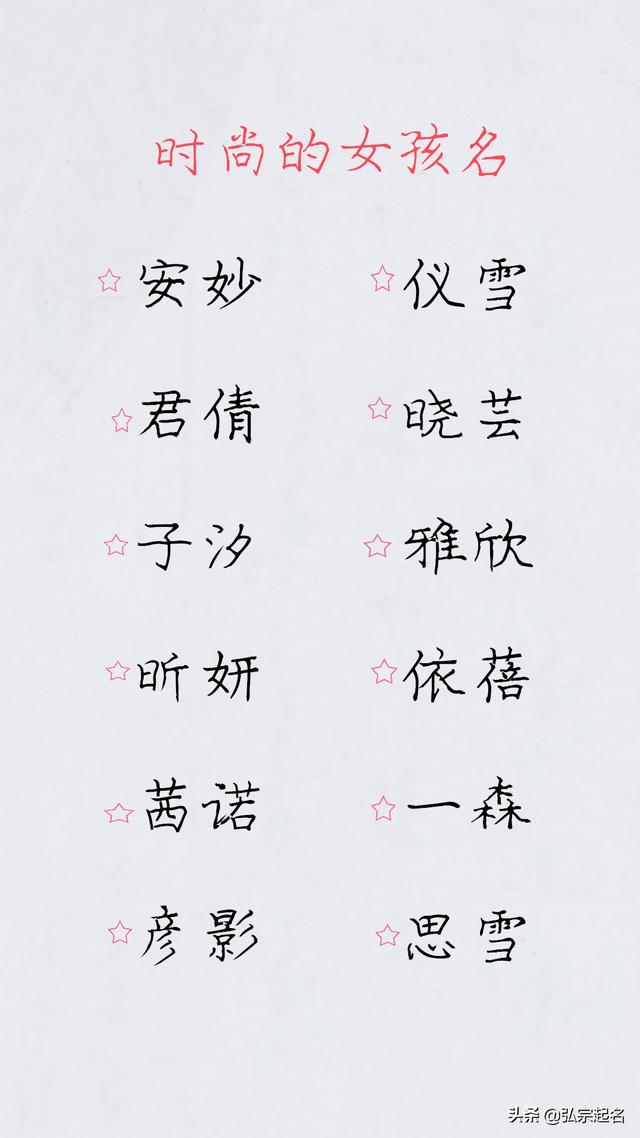 时尚的女孩名
☆安妙 ☆仪雪
☆君倩 ☆晓芸
☆子汐 ☆雅欣
☆昕妍 ☆依蓓
☆茜诺 ☆一森
☆彦影 ☆思雪
头条 @弘宗起名